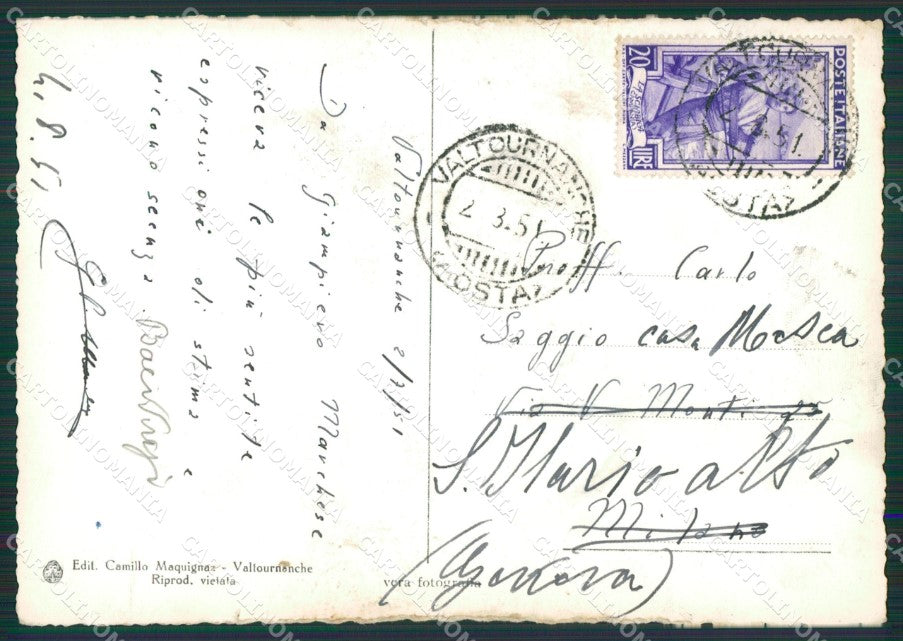 Valtournanche 2/3/51
Da Giampiero Marchese
riceva le più sentite
espressioni di stima e
4.8.51
VALTOURNANCHE
2.3.51
(AOSTA)
POSTE ITALIANE
20 LIRE
Proff. Carlo
Saggio casa Mosca
Via V. Monti
S. Ilario alto
Milano
(Genova)
Edit. Camillo Maquignaz - Valtournanche
Riprod. vietata
vera fotografia
CARTOLINOMANIA